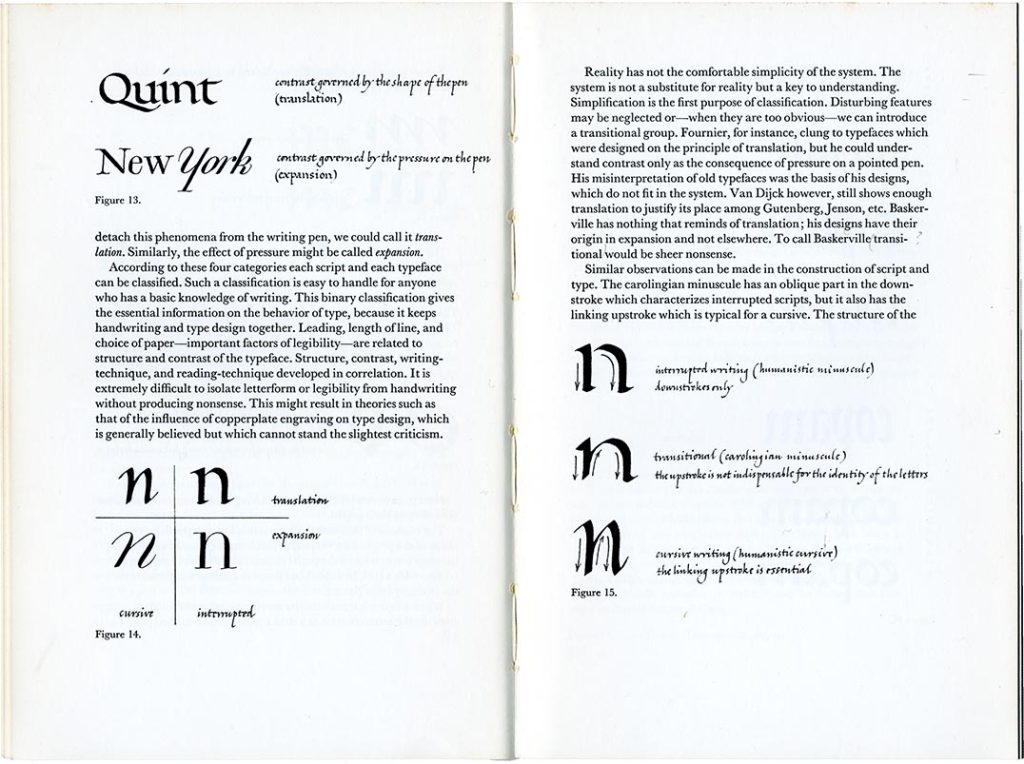 Quint
contrast governed by the shape of the pen
(translation)
New York
contrast governed by the pressure on the pen
(expansion)
Figure 13.
detach this phenomena from the writing pen, we could call it trans-
lation. Similarly, the effect of pressure might be called expansion.
According to these four categories each script and each typeface
can be classified. Such a classification is easy to handle for anyone
who has a basic knowledge of writing. This binary classification gives
the essential information on the behavior of type, because it keeps
handwriting and type design together. Leading, length of line, and
choice of paper—important factors of legibility—are related to
structure and contrast of the typeface. Structure, contrast, writing-
technique, and reading-technique developed in correlation. It is
extremely difficult to isolate letterform or legibility from handwriting
without producing nonsense. This might result in theories such as
that of the influence of copperplate engraving on type design, which
is generally believed but which cannot stand the slightest criticism.
n n translation
n n expansion
cursive interrupted
Figure 14.
Reality has not the comfortable simplicity of the system. The
system is not a substitute for reality but a key to understanding.
Simplification is the first purpose of classification. Disturbing features
may be neglected or—when they are too obvious—we can introduce
a transitional group. Fournier, for instance, clung to typefaces which
were designed on the principle of translation, but he could under-
stand contrast only as the consequence of pressure on a pointed pen.
His misinterpretation of old typefaces was the basis of his designs,
which do not fit in the system. Van Dijck however, still shows enough
translation to justify its place among Gutenberg, Jenson, etc. Basker-
ville has nothing that reminds of translation; his designs have their
origin in expansion and not elsewhere. To call Baskerville transi- ?
tional would be sheer nonsense.
Similar observations can be made in the construction of script and
type. The carolingian minuscule has an oblique part in the down-
stroke which characterizes interrupted scripts, but it also has the
linking upstroke which is typical for a cursive. The structure of the
n
interrupted writing (humanistic minuscule)
downstrokes only
n
transitional (carolingian minuscule)
the upstroke is not indispensable for the identity of the letters
n
cursive writing (humanistic cursive)
the linking upstroke is essential
Figure 15.